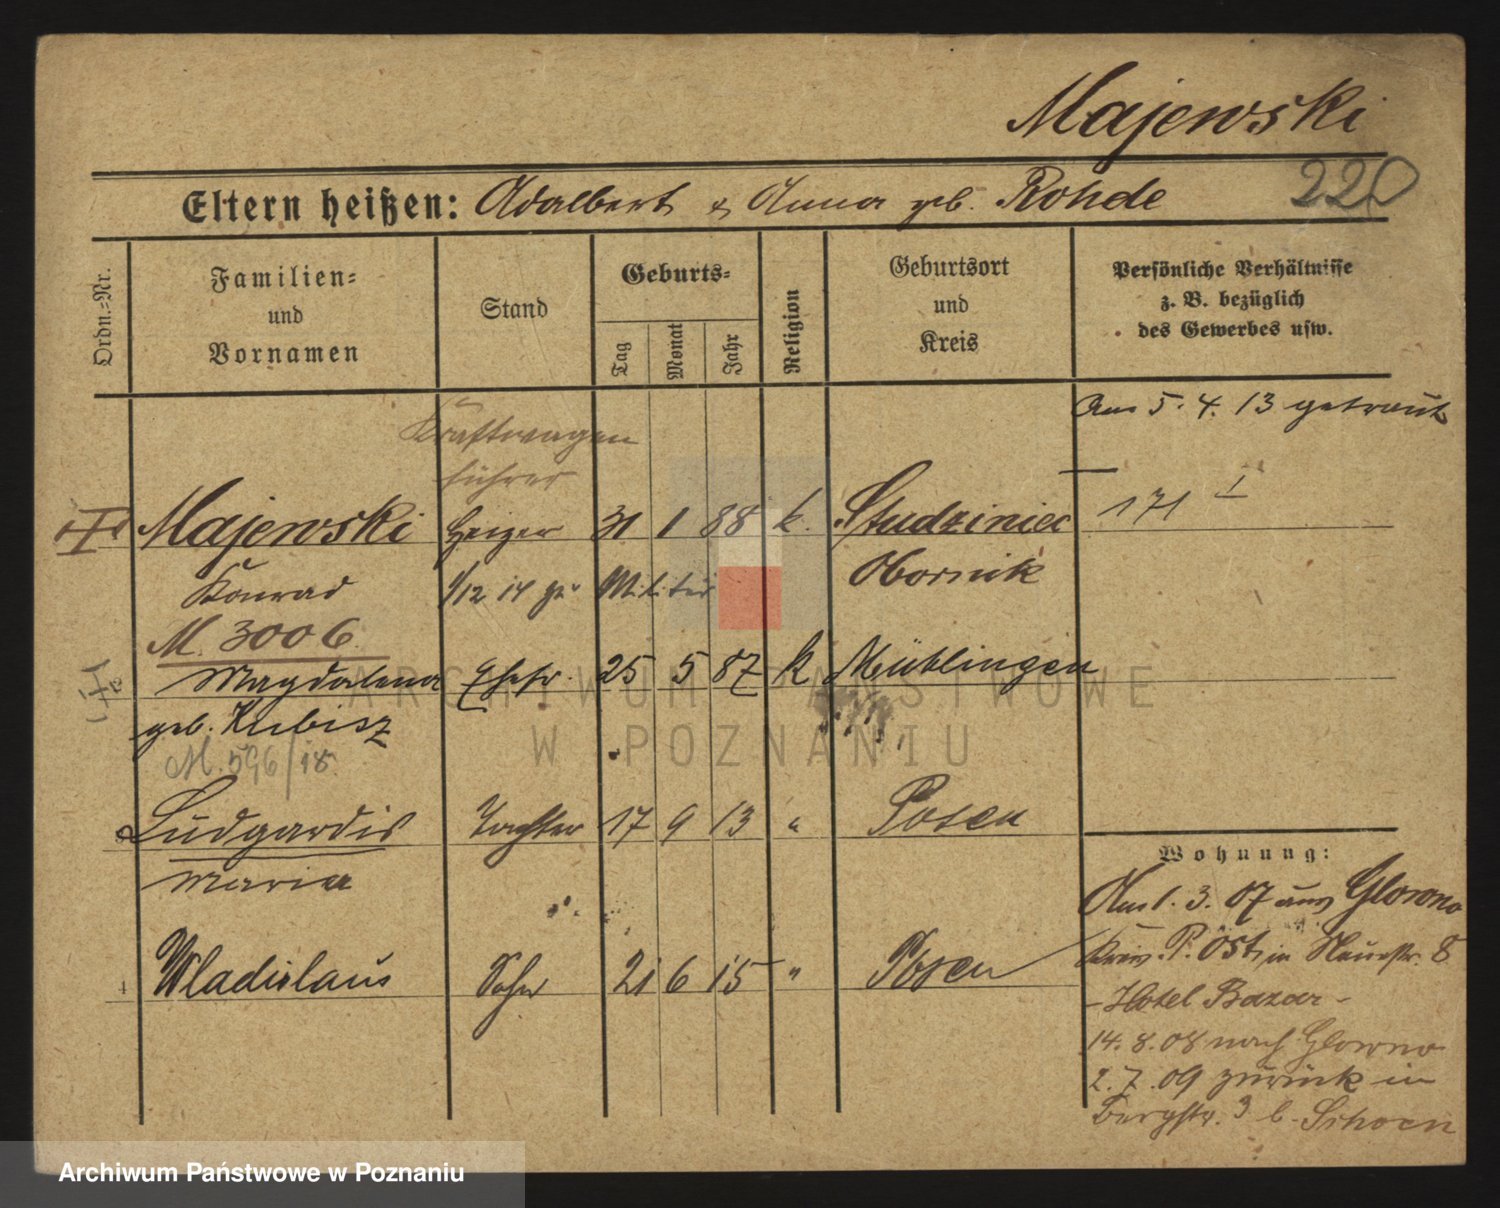 Majewski
220
Eltern heißen: Adalbert & Anna geb. Rohde
Ordn.-Nr.
Familien- und Vornamen
Stand
Geburts-
Tag
Monat
Jahr
Religion
Geburtsort und Kreis
Persönliche Verhältnisse
z. B. bezüglich
des Gewerbes usw.
Am 5. 4. 13 getraut
Kraftwagen
führer
171 I
Majewski Heizer 31 1 88 k. Studziniec
Konrad 1/12 14 zu Militär Obornik
M. 3006
Magdalena Ehefr. 25 5 87 k Mühlingen
geb. Kubisz
M. 596/18
Ludgardis Tochter 17 9 13 " Posen
Maria
4 Wladislaus Sohn 21 6 15 " Posen
Wohnung:
Am 1. 3. 07 aus Glowno
Kreis P. Ost, in Neuestr. 8
- Hotel Bazar -
14. 8. 08 nach Glowno
2. 7. 09 zurück in
Bergstr. 3 b. Schoen
ARCHIWUM PAŃSTWOWE
W POZNANIU
Archiwum Państwowe w Poznaniu